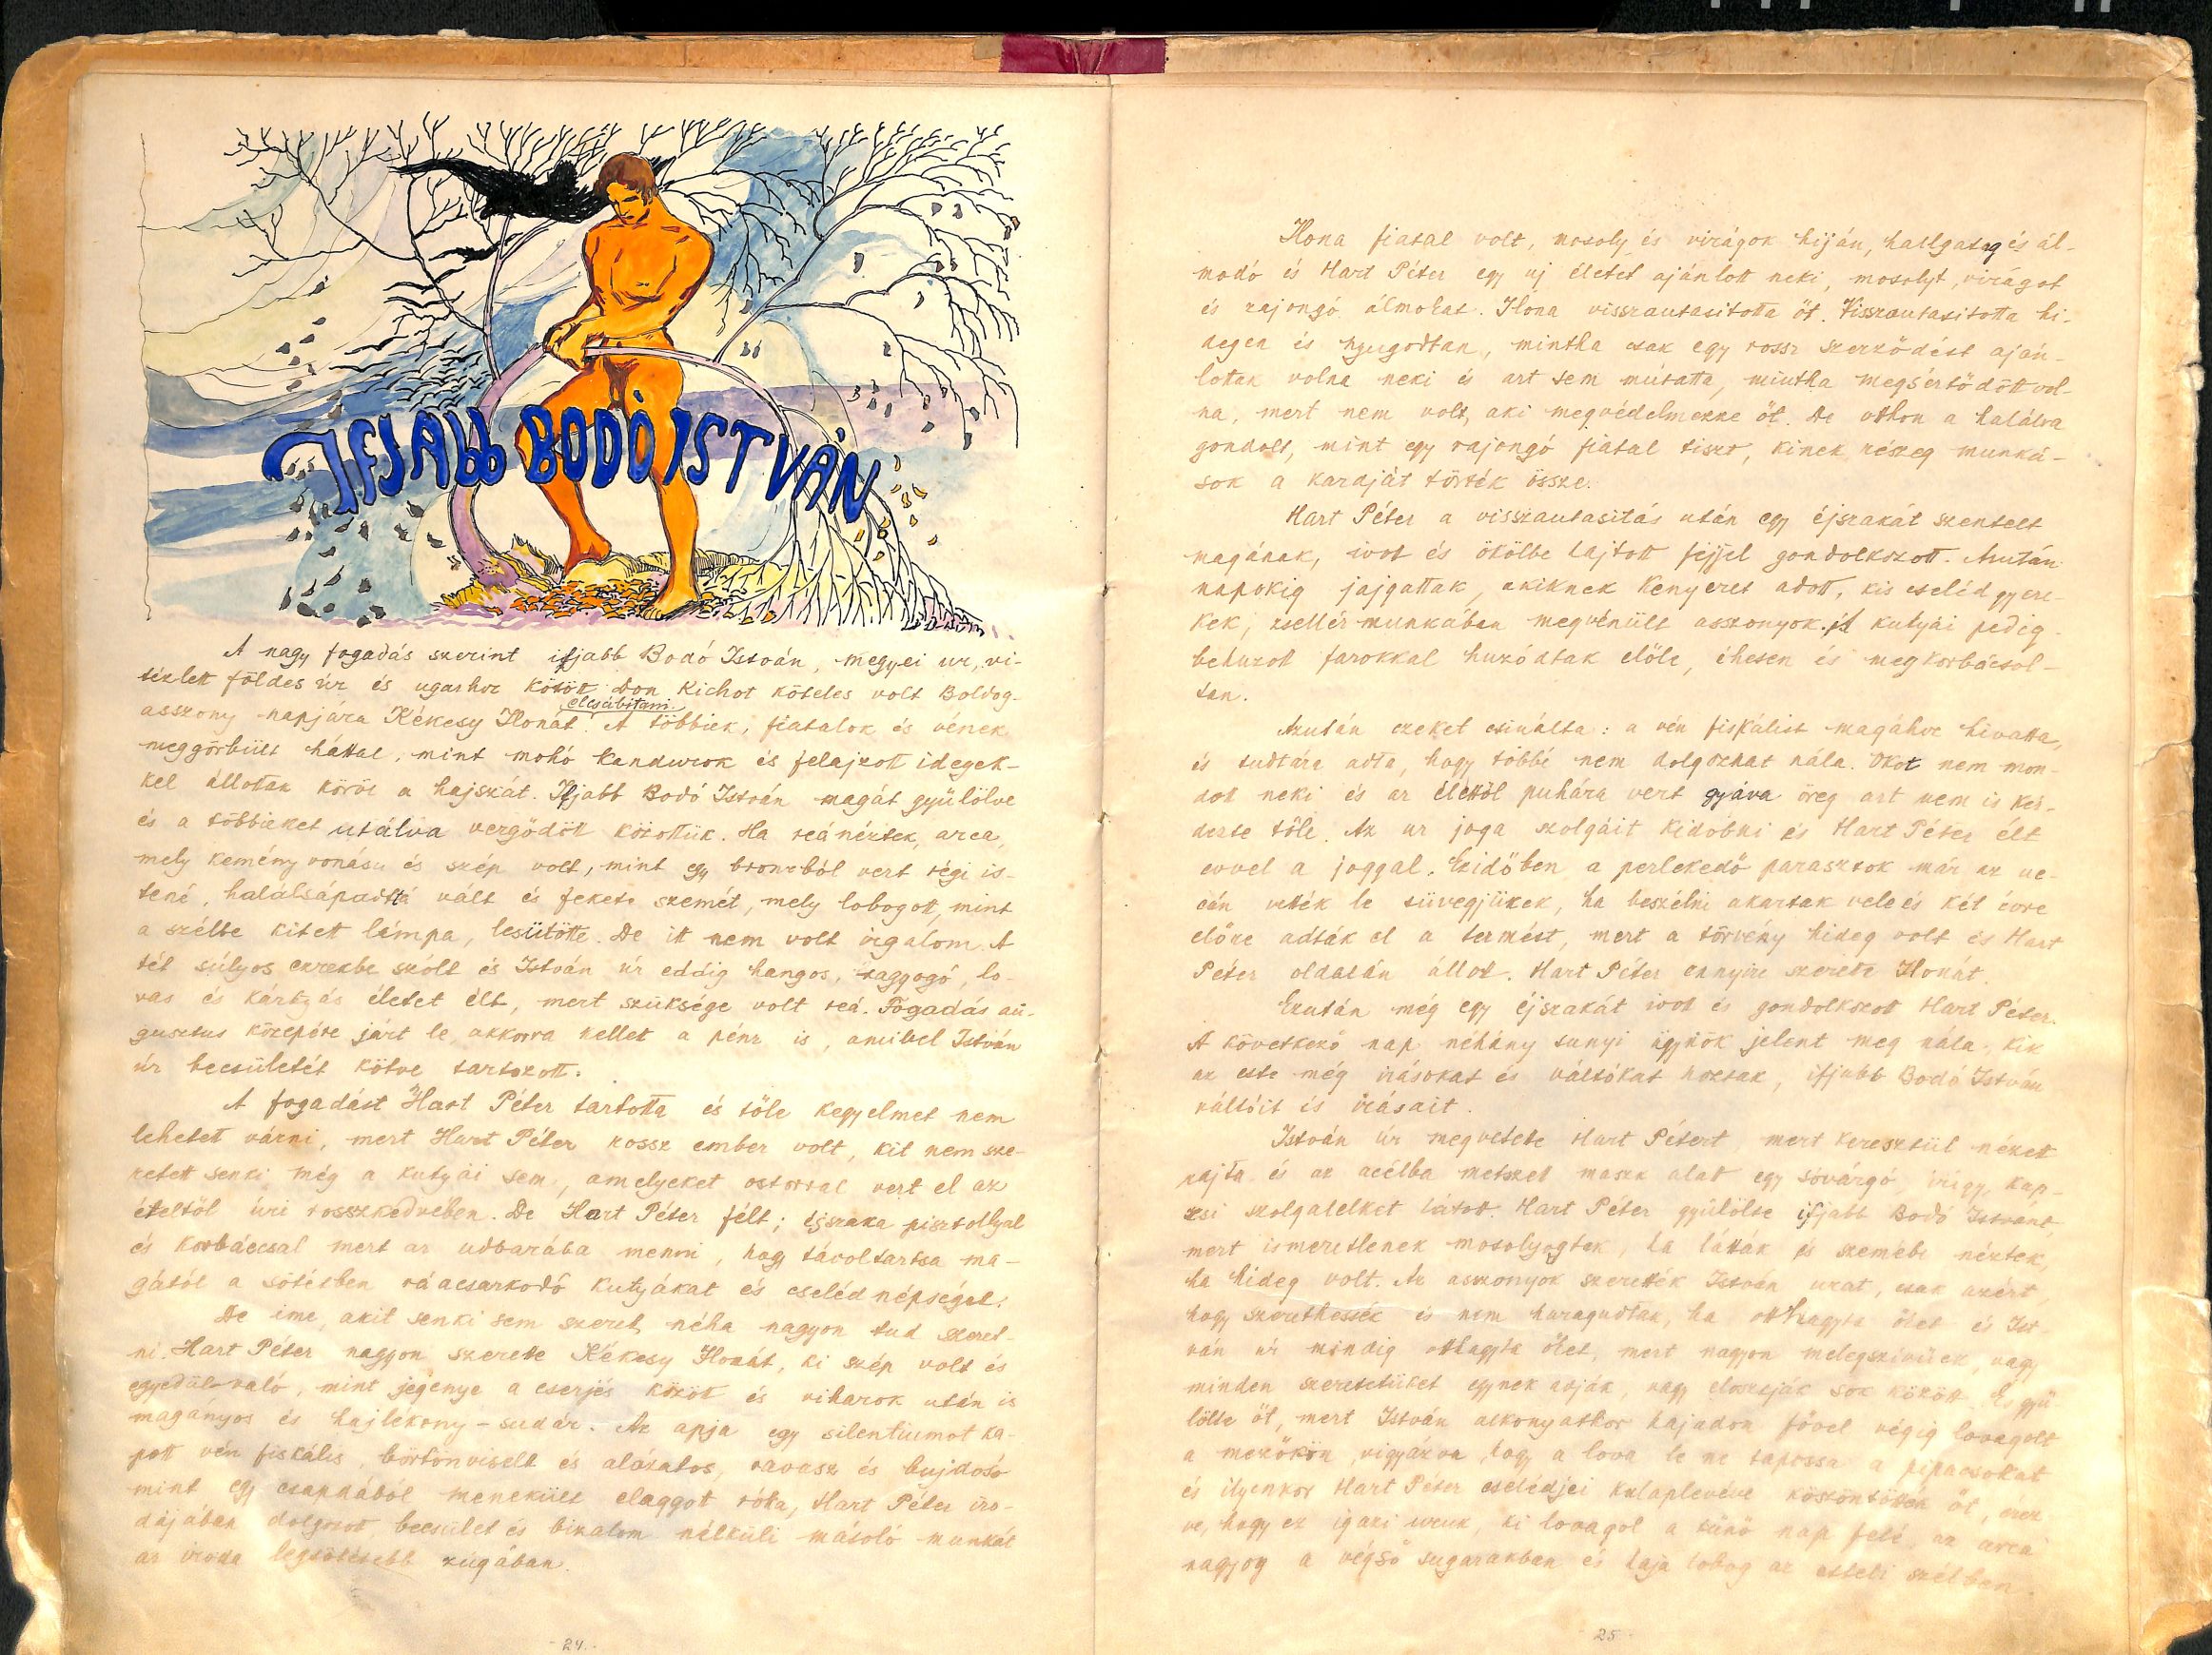 IFJABB BODÓ ISTVÁN
A nagy fogadás szerint ifjabb Bodó István, megyei ur, vi-
tézlett földes úr és ugarhoz kötött Don Kichot köteles volt Boldog-
elcsábitani.
asszony napjára Kékesy Ilonát. A többiek, fiatalok és vének
meggörbült háttal, mint mohó kandurok és felajzott idegek-
kel állottak körül a hajszát. Ifjabb Bodó István magát gyülölve
és a többieket utálva vergődött közöttük. Ha reánéztek, arca,
mely kemény vonásu és szép volt, mint egy bronzból vert régi is-
tené, halálsápadttá vált és fekete szemét, mely lobogott, mint
a szélbe kitett lámpa, lesütötte. De itt nem volt irgalom. A
tét súlyos ezrekbe szólt és István úr eddig hangos, ragyogó, lo-
vas és kártyás életet élt, mert szüksége volt reá. Fogadás au-
gusztus közepére járt le, akkorra kellet a pénz is, amivel István
úr becsületét kötve tartozott.
A fogadást Hart Péter tartotta és tőle kegyelmet nem
lehetett várni, mert Hart Péter rossz ember volt, kit nem sze-
retett senki, még a kutyái sem, amelyeket ostorral vert el az
ételtől úri rosszkedvében. De Hart Péter félt; éjszaka pisztollyal
és korbáccsal mert az udvarába menni, hogy távoltartsa ma-
gától a sötétben ráacsarkodó kutyákat és cseléd népséget.
De ime, akit senki sem szeret, néha nagyon tud szeret-
ni. Hart Péter nagyon szerette Kékesy Ilonát, ki szép volt és
egyedül-való, mint jegenye a cserjés között és viharok után is
magányos és hajlékony-sudár. Az apja egy silentiumot ka-
pott vén fiskális, börtönviselt és alázatos, ravasz és bujdosó
mint egy csapdából menekült elaggot róka, Hart Péter iro-
dájában dolgozott, becsület és bizalom nélküli másoló munkát
az iroda legsötétebb zúgában.
- 24. -
Ilona fiatal volt, mosoly és virágok hiján, hallgatag és ál-
modó és Hart Péter egy uj életet ajánlott neki, mosolyt, virágot
és rajongó álmokat. Ilona visszautasitotta őt. Visszautasitotta hi-
degen és nyugodtan, mintha csak egy rossz szerződést aján-
lottak volna neki és azt sem mutatta, mintha megsértődött vol-
na, mert nem volt, aki megvédelmezze őt. De otthon a halálra
gondolt, mint egy rajongó fiatal tiszt, kinek részeg munká-
sok a kardját törték össze.
Hart Péter a visszautasitás után egy éjszakát szentelt
magának, ivott és ökölbe hajtott fejjel gondolkozott. Azután
napokig jajgattak, akiknek kenyeret adott, kis cseléd gyere-
kek, zsellér munkában megvénült asszonyok. A kutyái pedig
behuzott farokkal huzódtak előle, éhesen és megkorbácsol-
tan.
Azután ezeket csinálta: a vén fiskálist magához hivatta,
és tudtára adta, hogy többé nem dolgozhat nála. Okot nem mon-
dott neki és az élettől puhára vert gyáva öreg azt nem is kér-
dezte tőle. Az ur joga szolgáit kidobni és Hart Péter élt
evvel a joggal. Ezidőben a perlekedő parasztok már az uc-
cán vették le süvegjüket, ha beszélni akartak vele és két évre
előre adták el a termést, mert a törvény hideg volt és Hart
Péter oldalán állott. Hart Péter ennyire szerette Ilonát.
Ezután még egy éjszakát ivott és gondolkozott Hart Péter.
A következő nap néhány sunyi ügynök jelent meg nála, kik
az este még irásokat és váltókat hoztak, ifjabb Bodó István
váltóit és irásait.
István úr megvetette Hart Pétert, mert keresztül nézett
rajta és az acélba metszett maszk alatt egy sóvárgó, irigy, kap-
zsi szolgalelket látott. Hart Péter gyülölte ifjabb Bodó Istvánt,
mert ismeretlenek mosolyogtak, ha látták és szemébe néztek,
ha hideg volt. Az asszonyok szerették István urat, csak azért,
hogy szerethessék és nem haragudtak, ha otthagyta őket és Ist
ván úr mindig otthagyta őket, mert nagyon melegszivüek vagy
minden szeretetüket egynek adják, vagy elosztják sok között. És gyü
lölte őt, mert István alkonyatkor hajadon fővel végig lovagolt
a mezőkön, vigyázva, hogy a lova le ne tapossa a pipacsokat
és ilyenkor Hart Péter cselédjei kalaplevéve köszöntötték őt, érez
ve, hogy ez igazi uruk, ki lovagol a tünő nap felé, az arca
ragyog a végső sugarakban és haja lobog az esteli szélben.
- 25 -